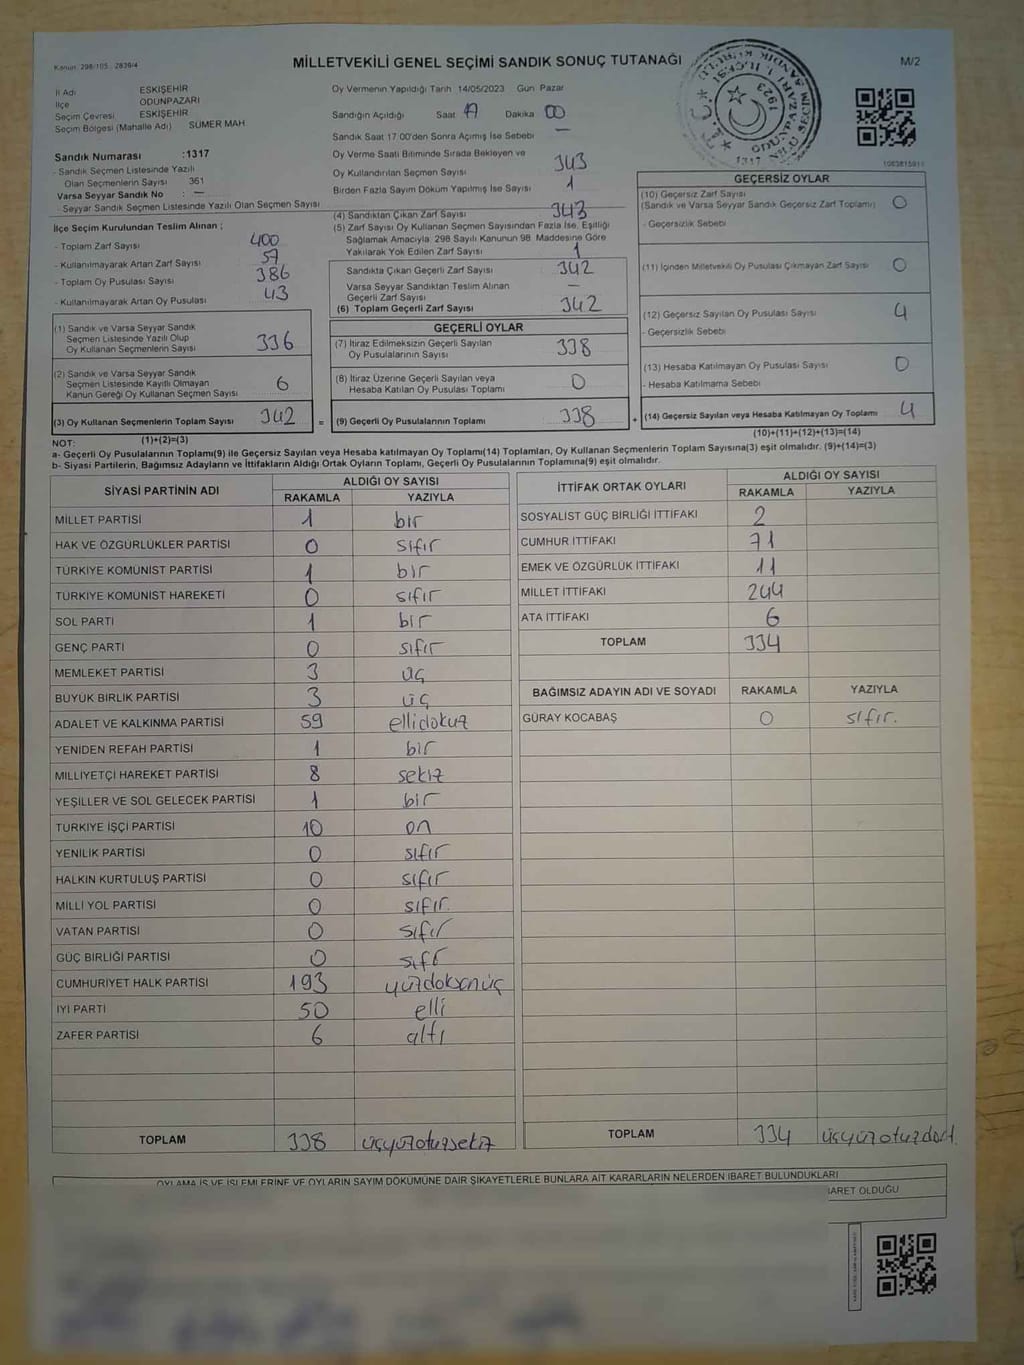 Kanun: 298/105 2839/4
MİLLETVEKİLİ GENEL SEÇİMİ SANDIK SONUÇ TUTANAĞI
M/2
İl Adı ESKİŞEHİR
İlçe ODUNPAZARI
Seçim Çevresi ESKİŞEHİR
Seçim Bölgesi (Mahalle Adı) SÜMER MAH.
Sandık Numarası :1317
- Sandık Seçmen Listesinde Yazılı
Olan Seçmenlerin Sayısı 361
Varsa Seyyar Sandık No : —
- Seyyar Sandık Seçmen Listesinde Yazılı Olan Seçmen Sayısı
İlçe Seçim Kurulundan Teslim Alınan ;
- Toplam Zarf Sayısı 400
- Kullanılmayarak Artan Zarf Sayısı 57
- Toplam Oy Pusulası Sayısı 386
- Kullanılmayarak Artan Oy Pusulası 43
(1) Sandık ve Varsa Seyyar Sandık
Seçmen Listesinde Yazılı Olup
Oy Kullanan Seçmenlerin Sayısı 336
(2) Sandık ve Varsa Seyyar Sandık
Seçmen Listesinde Kayıtlı Olmayan
Kanun Gereği Oy Kullanan Seçmen Sayısı 6
(3) Oy Kullanan Seçmenlerin Toplam Sayısı 342
Oy Vermenin Yapıldığı Tarih 14/05/2023 Gün Pazar
Sandığın Açıldığı Saat 17 Dakika 00
Sandık Saat 17:00'den Sonra Açılmış İse Sebebi —
Oy Verme Saati Bitiminde Sırada Bekleyen ve
Oy Kullandırılan Seçmen Sayısı 343
Birden Fazla Sayım Döküm Yapılmış İse Sayısı 1
(4) Sandıktan Çıkan Zarf Sayısı 343
(5) Zarf Sayısı Oy Kullanan Seçmen Sayısından Fazla İse, Eşitliği
Sağlamak Amacıyla; 298 Sayılı Kanunun 98. Maddesine Göre
Yakılarak Yok Edilen Zarf Sayısı 1
Sandıkta Çıkan Geçerli Zarf Sayısı 342
Varsa Seyyar Sandıktan Teslim Alınan
Geçerli Zarf Sayısı —
(6) Toplam Geçerli Zarf Sayısı 342
GEÇERLİ OYLAR
(7) İtiraz Edilmeksizin Geçerli Sayılan
Oy Pusulalarının Sayısı 338
(8) İtiraz Üzerine Geçerli Sayılan veya
Hesaba Katılan Oy Pusulası Toplamı 0
= (9) Geçerli Oy Pusulalarının Toplamı 338
T.C.
ODUNPAZARI
1923
1317
1063815911
GEÇERSİZ OYLAR
(10) Geçersiz Zarf Sayısı 0
(Sandık ve Varsa Seyyar Sandık Geçersiz Zarf Toplamı)
- Geçersizlik Sebebi
(11) İçinden Milletvekili Oy Pusulası Çıkmayan Zarf Sayısı 0
(12) Geçersiz Sayılan Oy Pusulası Sayısı 4
- Geçersizlik Sebebi
(13) Hesaba Katılmayan Oy Pusulası Sayısı 0
- Hesaba Katılmama Sebebi
+ (14) Geçersiz Sayılan veya Hesaba Katılmayan Oy Toplamı 4
NOT: (1)+(2)=(3)
(10)+(11)+(12)+(13)=(14)
a- Geçerli Oy Pusulalarının Toplamı(9) ile Geçersiz Sayılan veya Hesaba Katılmayan Oy Toplamı(14) Toplamları, Oy Kullanan Seçmenlerin Toplam Sayısına(3) eşit olmalıdır. (9)+(14)=(3)
b- Siyasi Partilerin, Bağımsız Adayların ve İttifakların Aldığı Ortak Oyların Toplamı, Geçerli Oy Pusulalarının Toplamına(9) eşit olmalıdır.
SİYASİ PARTİNİN ADI ALDIĞI OY SAYISI
RAKAMLA YAZIYLA
MİLLET PARTİSİ 1 bir
HAK VE ÖZGÜRLÜKLER PARTİSİ 0 sıfır
TÜRKİYE KOMÜNİST PARTİSİ 1 bir
TÜRKİYE KOMÜNİST HAREKETİ 0 sıfır
SOL PARTİ 1 bir
GENÇ PARTİ 0 sıfır
MEMLEKET PARTİSİ 3 üç
BÜYÜK BİRLİK PARTİSİ 3 üç
ADALET VE KALKINMA PARTİSİ 59 ellidokuz
YENİDEN REFAH PARTİSİ 1 bir
MİLLİYETÇİ HAREKET PARTİSİ 8 sekiz
YEŞİLLER VE SOL GELECEK PARTİSİ 1 bir
TÜRKİYE İŞÇİ PARTİSİ 10 on
YENİLİK PARTİSİ 0 sıfır
HALKIN KURTULUŞ PARTİSİ 0 sıfır
MİLLİ YOL PARTİSİ 0 sıfır.
VATAN PARTİSİ 0 sıfır
GÜÇ BİRLİĞİ PARTİSİ 0 sıfr
CUMHURİYET HALK PARTİSİ 193 yüzdoksanüç
İYİ PARTİ 50 elli
ZAFER PARTİSİ 6 altı
TOPLAM 338 üçyüzotuzsekiz
İTTİFAK ORTAK OYLARI ALDIĞI OY SAYISI
RAKAMLA YAZIYLA
SOSYALİST GÜÇ BİRLİĞİ İTTİFAKI 2
CUMHUR İTTİFAKI 71
EMEK VE ÖZGÜRLÜK İTTİFAKI 11
MİLLET İTTİFAKI 244
ATA İTTİFAKI 6
TOPLAM 334
BAĞIMSIZ ADAYIN ADI VE SOYADI RAKAMLA YAZIYLA
GÜRAY KOCABAŞ 0 sıfır.
TOPLAM 334 üçyüzotuzdört
OYLAMA İŞ VE İŞLEMLERİNE VE OYLARIN SAYIM DÖKÜMÜNE DAİR ŞİKAYETLERLE BUNLARA AİT KARARLARIN NELERDEN İBARET BULUNDUKLARI
İBARET OLDUĞU